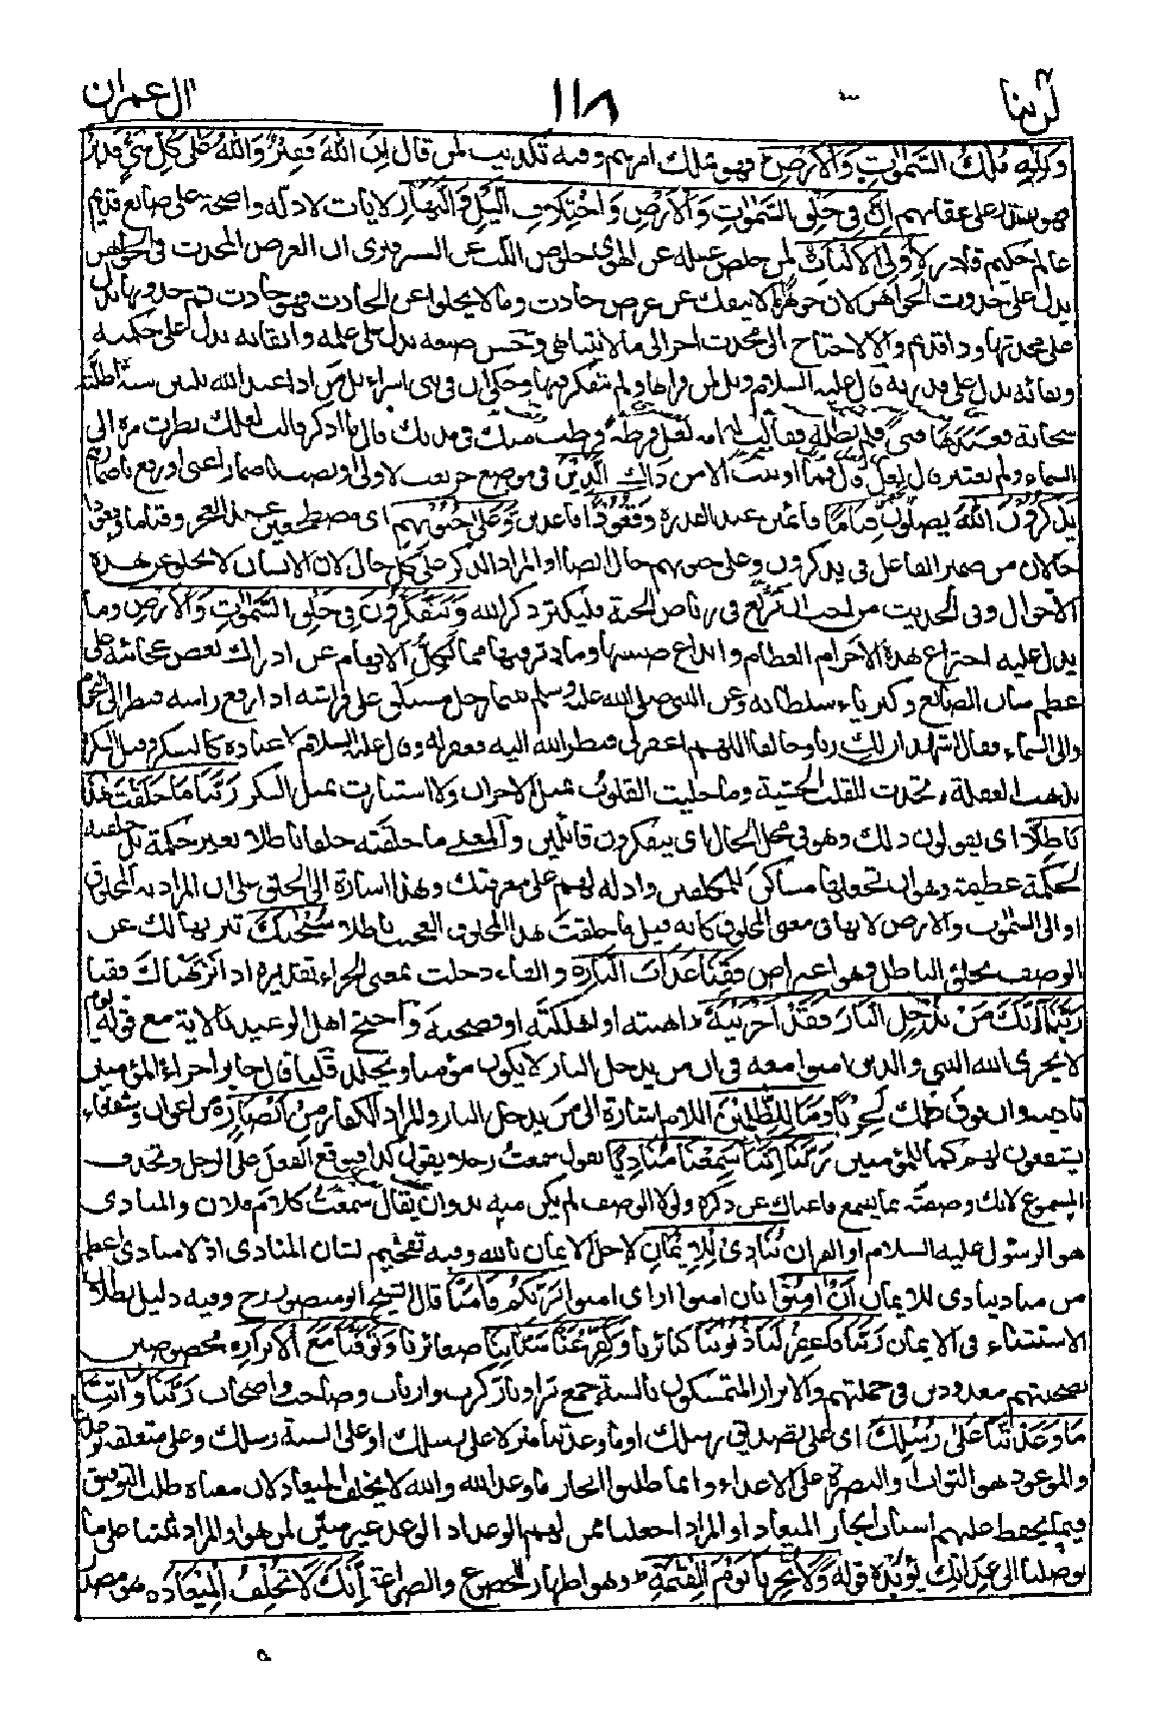 لن تنا ١١٨ ال عمران
ولله مُلْكُ السَّمٰوٰتِ وَالْاَرْضِ فهو ملك امرهم وفيه تكذيب لمن قال اِنَّ اللّٰهَ فَقِيْرٌ وَاللّٰهُ عَلٰى كُلِّ شَىْءٍ قَدِيْرٌ
فهو يقدر على عقابهم اِنَّ فِىْ خَلْقِ السَّمٰوٰتِ وَالْاَرْضِ وَاخْتِلَافِ الَّيْلِ وَالنَّهَارِ لَاٰيَاتٍ لادلة واضحة على صانع قديم
عالم حكيم قادر لِاُولِى الْاَلْبَابِ لمن خلص عقله عن الهوى خلوص اللب عن القشر فيرى ان العرض المحدث فى الجواهر
يدل على حدوث الجواهر لان جوهرا لا ينفك عن عرض حادث وما لا يخلوا عن الحادث فهو حادث ثم حدوثها يدل
على محدثها وذا قديم والا لاحتاج الى محدث اخر الى ما لا يتناهى وحسن صنعه يدل على علمه واتقانه يدل على حكمته
وبقائه يدل على قدرته قال عليه السلام ويل لمن قراها ولم يتفكر فيها وحكى ان فى بنى اسرائيل من اذا عبد الله ثلثين سنة اظلته
سحابة فعبدها فتى فلم تظله فقالت له امه لعل فرطة فرطت منك فى مدتك قال ما اذكر قالت لعلك نظرت مرة الى
السماء ولم تعتبر قال لعل قالت فما اوتيت الا من ذاك الَّذِيْنَ فى موضع جر نعت لاولى او نصب باضمار اعنى او رفع باضمار هم
يَذْكُرُوْنَ اللّٰهَ يصلون قِيَامًا قائمين عند القدرة وَقُعُوْدًا قاعدين وَعَلٰى جُنُوْبِهِمْ اى مضطجعين عند العجز وقياما وقعودا
حالان من ضمير الفاعل فى يذكرون وعلى جنوبهم حال ايضا او المراد الذكر على كل حال لان الانسان لا يخلو عن هذه
الاحوال وفى الحديث من احب ان يرتع فى رياض الجنة فليكثر ذكر الله وَيَتَفَكَّرُوْنَ فِىْ خَلْقِ السَّمٰوٰتِ وَالْاَرْضِ وما
يدل عليه اختراع هذه الاجرام العظام وابداع صنعتها وما دبر فيها مما تكل الافهام عن ادراك بعض عجائبه على
عظم شان الصانع وكبرياء سلطانه وعن النبى صلى الله عليه وسلم بينما رجل مستلق على فراشه اذ رفع راسه فنظر الى النجوم
والى السماء فقال اشهد ان لك ربا وخالقا اللهم اغفر لى فنظر الله اليه فغفر له وقال عليه السلام لا عبادة كالتفكر وقيل الفكرة
تذهب الغفلة وتحدث للقلب الخشية وما جليت القلوب بمثل الاحزان ولا استنارت بمثل الفكر رَبَّنَا مَا خَلَقْتَ هٰذَا
بَاطِلًا اى يقولون ذلك وهو فى محل الحال اى يتفكرون قائلين والمعنى ما خلقته خلقا باطلا بغير حكمة بل خلقته
لحكمة عظيمة وهو ان تجعلها مساكن للمكلفين وادلة لهم على معرفتك وهذا اشارة الى الخلق على ان المراد به المخلوق
او الى السمٰوٰت والارض لانها فى معنى المخلوق كانه قيل ما خلقت هذا المخلوق العجيب باطلا سُبْحٰنَكَ تنزيها لك عن
الوصف بخلق الباطل وهو اعتراض فَقِنَا عَذَابَ النَّارِ ه والفاء دخلت لمعنى الجزاء تقديره اذا نزهناك فقنا
رَبَّنَا اِنَّكَ مَنْ تُدْخِلِ النَّارَ فَقَدْ اَخْزَيْتَهٗ اهنته او اهلكته او فضحته واحتج اهل الوعيد بالاية مع قوله يوم
لا يخزى الله النبى والذين امنوا معه فى ان من يدخل النار لا يكون مؤمنا ويخلد قلنا قال جابر اخزاء المؤمنين
تاديبه وان فوق ذلك لخزيا وَمَا لِلظّٰلِمِيْنَ اللام اشارة الى من يدخل النار والمراد الكفار مِنْ اَنْصَارٍ ه من اعوان وشفعاء
يشفعون لهم كما للمؤمنين رَبَّنَا اِنَّنَا سَمِعْنَا مُنَادِيًا تقول سمعت رجلا يقول كذا فتوقع الفعل على الرجل وتحذف
المسموع لانك وصفته بما يسمع فاغناك عن ذكره ولولا الوصف لم يكن منه بد وان يقال سمعت كلام فلان والمنادى
هو الرسول عليه السلام او القران يُنَادِىْ لِلْاِيْمَانِ لاجل الايمان بالله وفيه تفخيم لشان المنادى اذ لا منادى اعظم
من مناد ينادى للايمان اَنْ اٰمِنُوْا بان امنوا او اى امنوا بِرَبِّكُمْ فَاٰمَنَّا قال الشيخ ابو منصور رح وفيه دليل بطلان
الاستثناء فى الايمان رَبَّنَا فَاغْفِرْ لَنَا ذُنُوْبَنَا كبائرنا وَكَفِّرْ عَنَّا سَيِّاٰتِنَا صغائرنا وَتَوَفَّنَا مَعَ الْاَبْرَارِ ه مخصوصين
بصحبتهم معدودين فى جملتهم والابرار المتمسكون بالسنة جمع بر او بار كرب وارباب وصاحب واصحاب رَبَّنَا وَاٰتِنَا
مَا وَعَدْتَّنَا عَلٰى رُسُلِكَ اى على تصديق رسلك او ما وعدتنا منزلا على رسلك او على السنة رسلك وعلى متعلقه بوعدتنا
والموعود هو الثواب او النصرة على الاعداء وانما طلبوا انجاز ما وعد الله والله لا يخلف الميعاد لان معناه طلب التوفيق
فيما يحفظ عليهم اسباب انجاز الميعاد او المراد اجعلنا ممن لهم الوعد اذ الوعد غير مبين لمن هو او المراد ثبتنا على ما
يوصلنا الى عدتك يؤيده قوله وَلَا تُخْزِنَا يَوْمَ الْقِيٰمَةِ وهو اظهار الخضوع والضراعة اِنَّكَ لَا تُخْلِفُ الْمِيْعَادَ ه هو مصدر